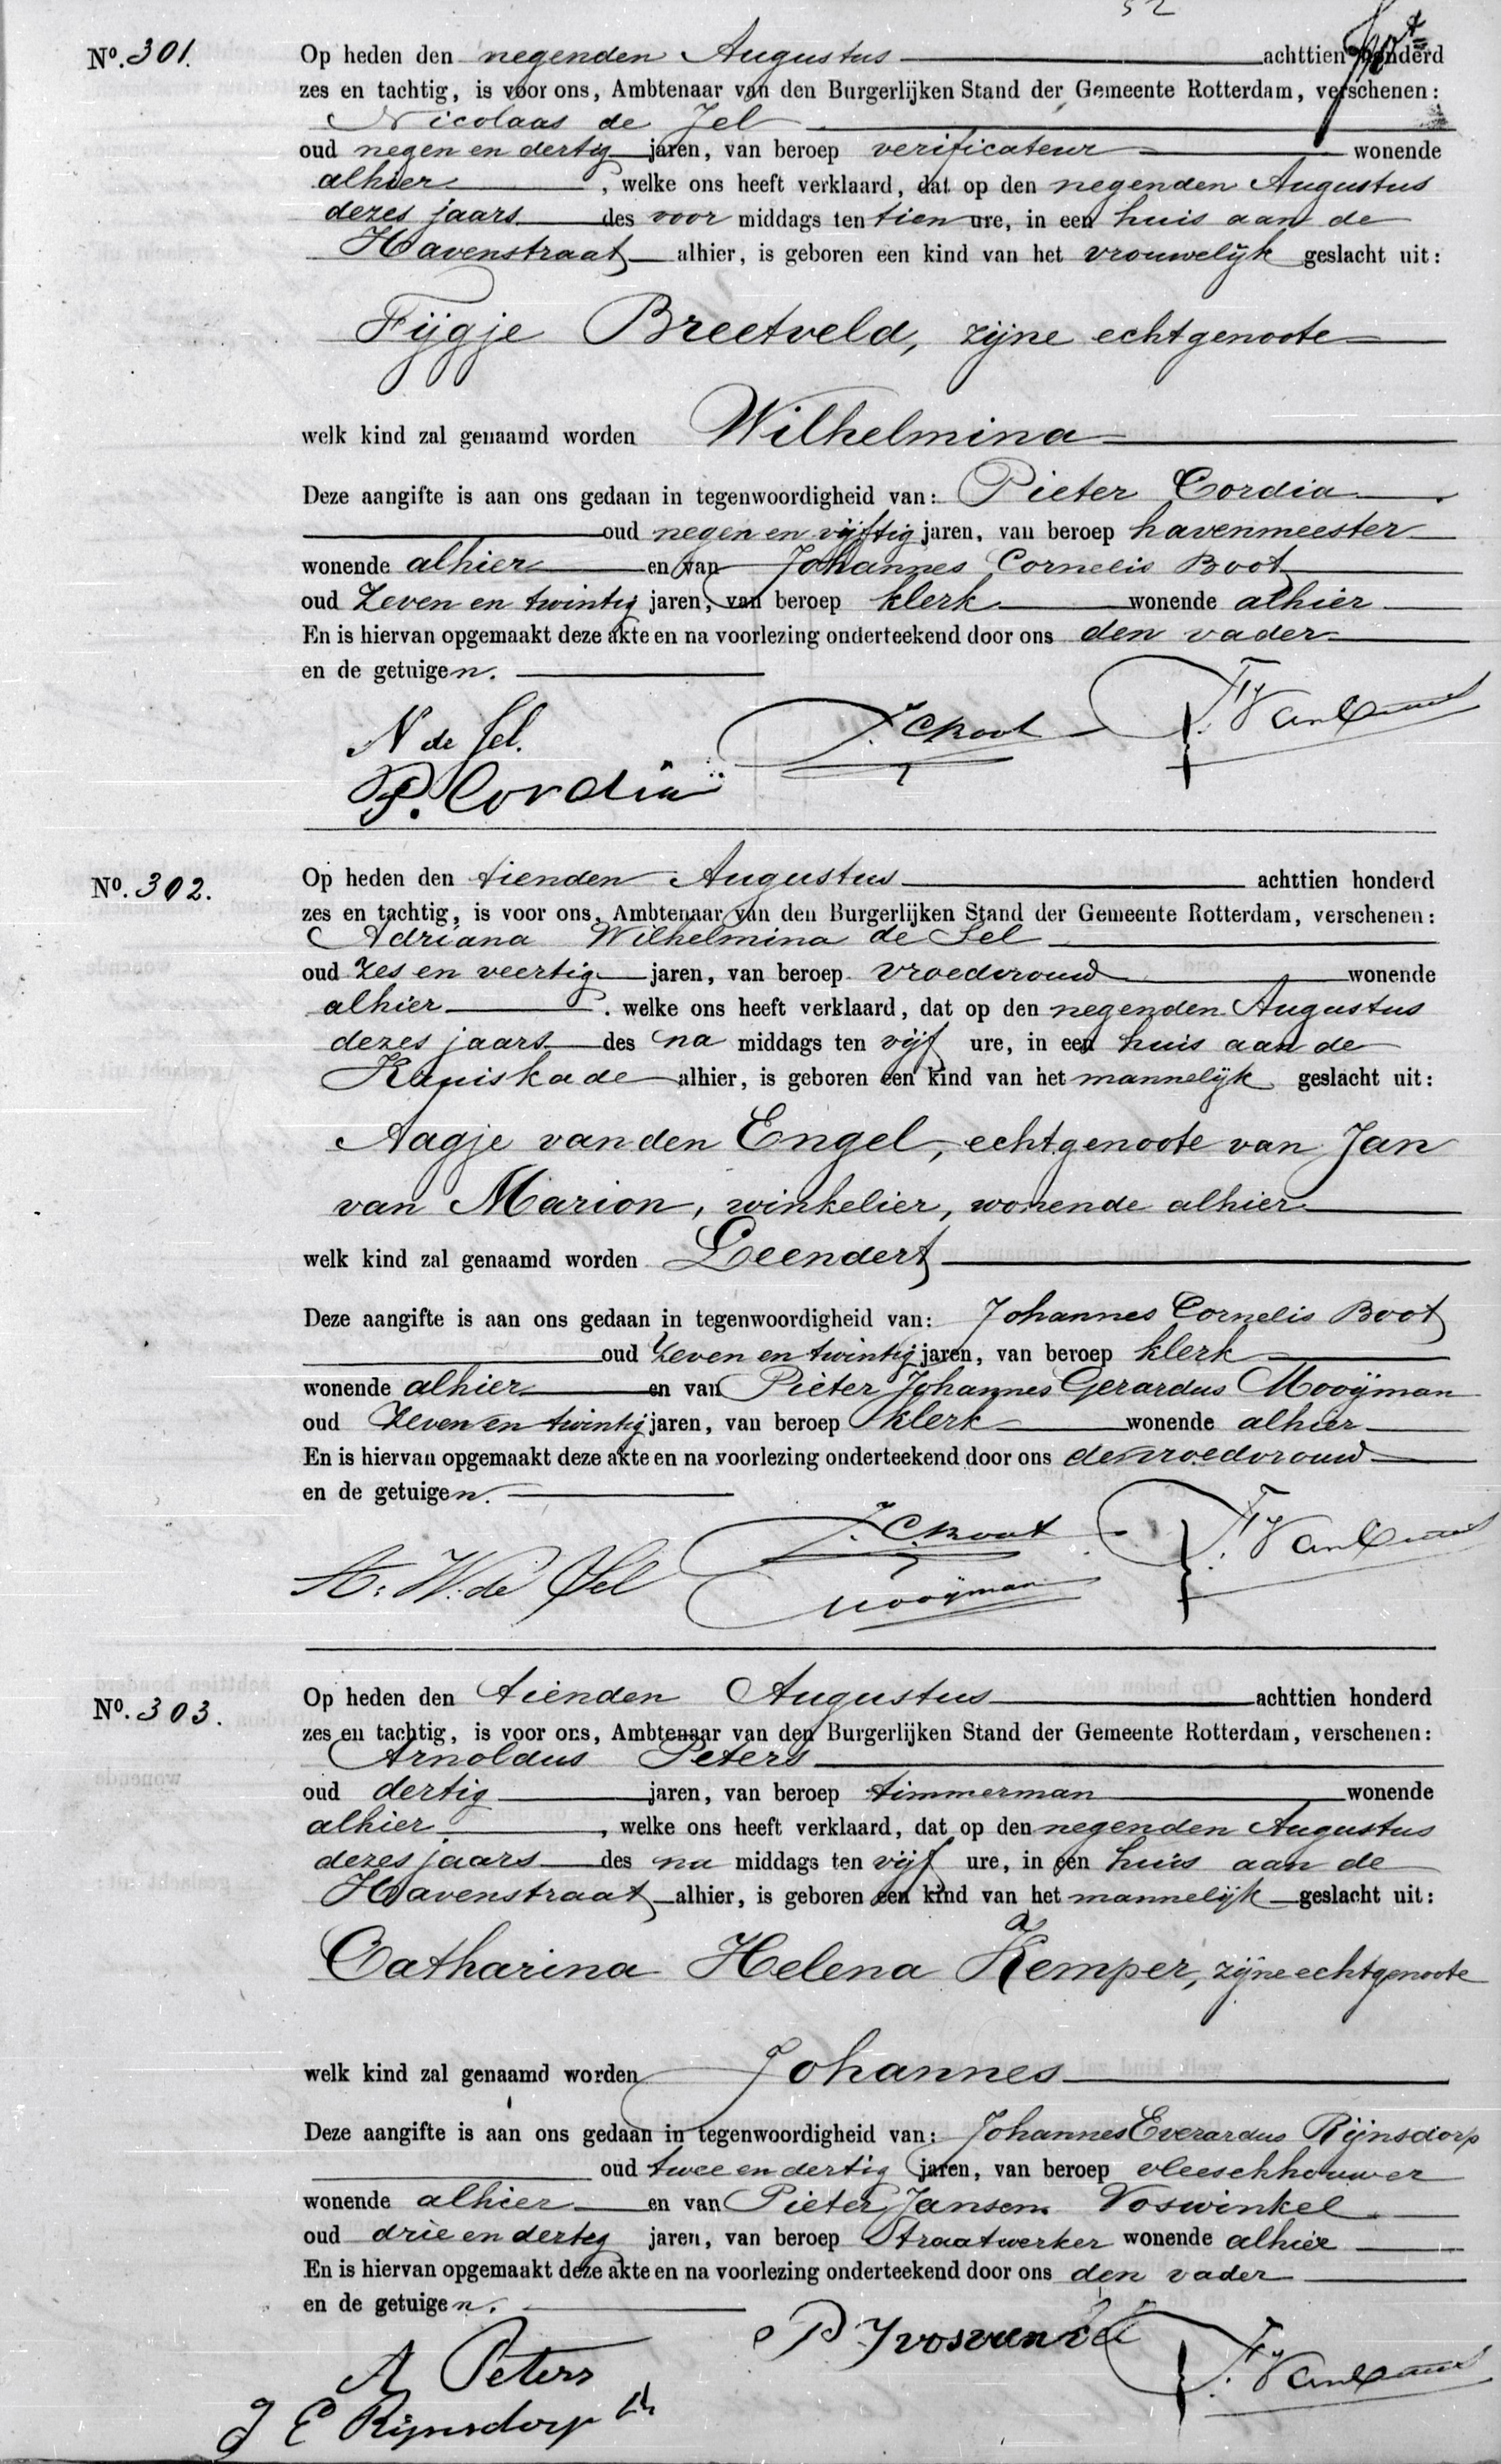 52
No. 301.
Op heden den negenden Augustus achttien honderd
zes en tachtig, is voor ons, Ambtenaar van den Burgerlijken Stand der Gemeente Rotterdam, verschenen:
Nicolaas de Jel
oud negen en dertig jaren, van beroep verificateur wonende
alhier, welke ons heeft verklaard, dat op den negenden Augustus
dezes jaars des voor middags ten tien ure, in een huis aan de
Havenstraat alhier, is geboren een kind van het vrouwelijk geslacht uit:
Fijgje Breetveld, zijne echtgenoote
welk kind zal genaamd worden Wilhelmina
Deze aangifte is aan ons gedaan in tegenwoordigheid van: Pieter Cordia
oud negen en vijftig jaren, van beroep havenmeester
wonende alhier en van Johannes Cornelis Boot
oud Zeven en twintig jaren, van beroep klerk wonende alhier
En is hiervan opgemaakt deze akte en na voorlezing onderteekend door ons den vader
en de getuigen.
N de Jel. J. C. Boot
P. Cordia
No. 302.
Op heden den tienden Augustus achttien honderd
zes en tachtig, is voor ons, Ambtenaar van den Burgerlijken Stand der Gemeente Rotterdam, verschenen:
Adriana Wilhelmina de Jel
oud Zes en veertig jaren, van beroep vroedvrouw wonende
alhier. welke ons heeft verklaard, dat op den negenden Augustus
dezes jaars des na middags ten vijf ure, in een huis aan de
Kruiskade alhier, is geboren een kind van het mannelijk geslacht uit:
Aagje van den Engel, echtgenoote van Jan
van Marion, winkelier, wonende alhier
welk kind zal genaamd worden Leendert
Deze aangifte is aan ons gedaan in tegenwoordigheid van: Johannes Cornelis Boot
oud Zeven en twintig jaren, van beroep klerk
wonende alhier en van Pieter Johannes Gerardus Mooijman
oud Zeven en twintig jaren, van beroep klerk wonende alhier
En is hiervan opgemaakt deze akte en na voorlezing onderteekend door ons de vroedvrouw
en de getuigen.
J. C. Boot
A: W. de Jel Mooijman
No. 303.
Op heden den tienden Augustus achttien honderd
zes en tachtig, is voor ons, Ambtenaar van den Burgerlijken Stand der Gemeente Rotterdam, verschenen:
Arnoldus Peters
oud dertig jaren, van beroep timmerman wonende
alhier, welke ons heeft verklaard, dat op den negenden Augustus
dezes jaars des na middags ten vijf ure, in een huis aan de
Havenstraat alhier, is geboren een kind van het mannelijk geslacht uit:
Catharina Helena Kemper, zijne echtgenoote
welk kind zal genaamd worden Johannes
Deze aangifte is aan ons gedaan in tegenwoordigheid van: Johannes Everardus Rijnsdorp
oud twee en dertig jaren, van beroep vleeschhouwer
wonende alhier en van Pieter Jansen Voswinkel
oud drie en dertig jaren, van beroep Straatwerker wonende alhier
En is hiervan opgemaakt deze akte en na voorlezing onderteekend door ons den vader
en de getuigen.
P J voswinkel
A Peters
J E Rijnsdorp